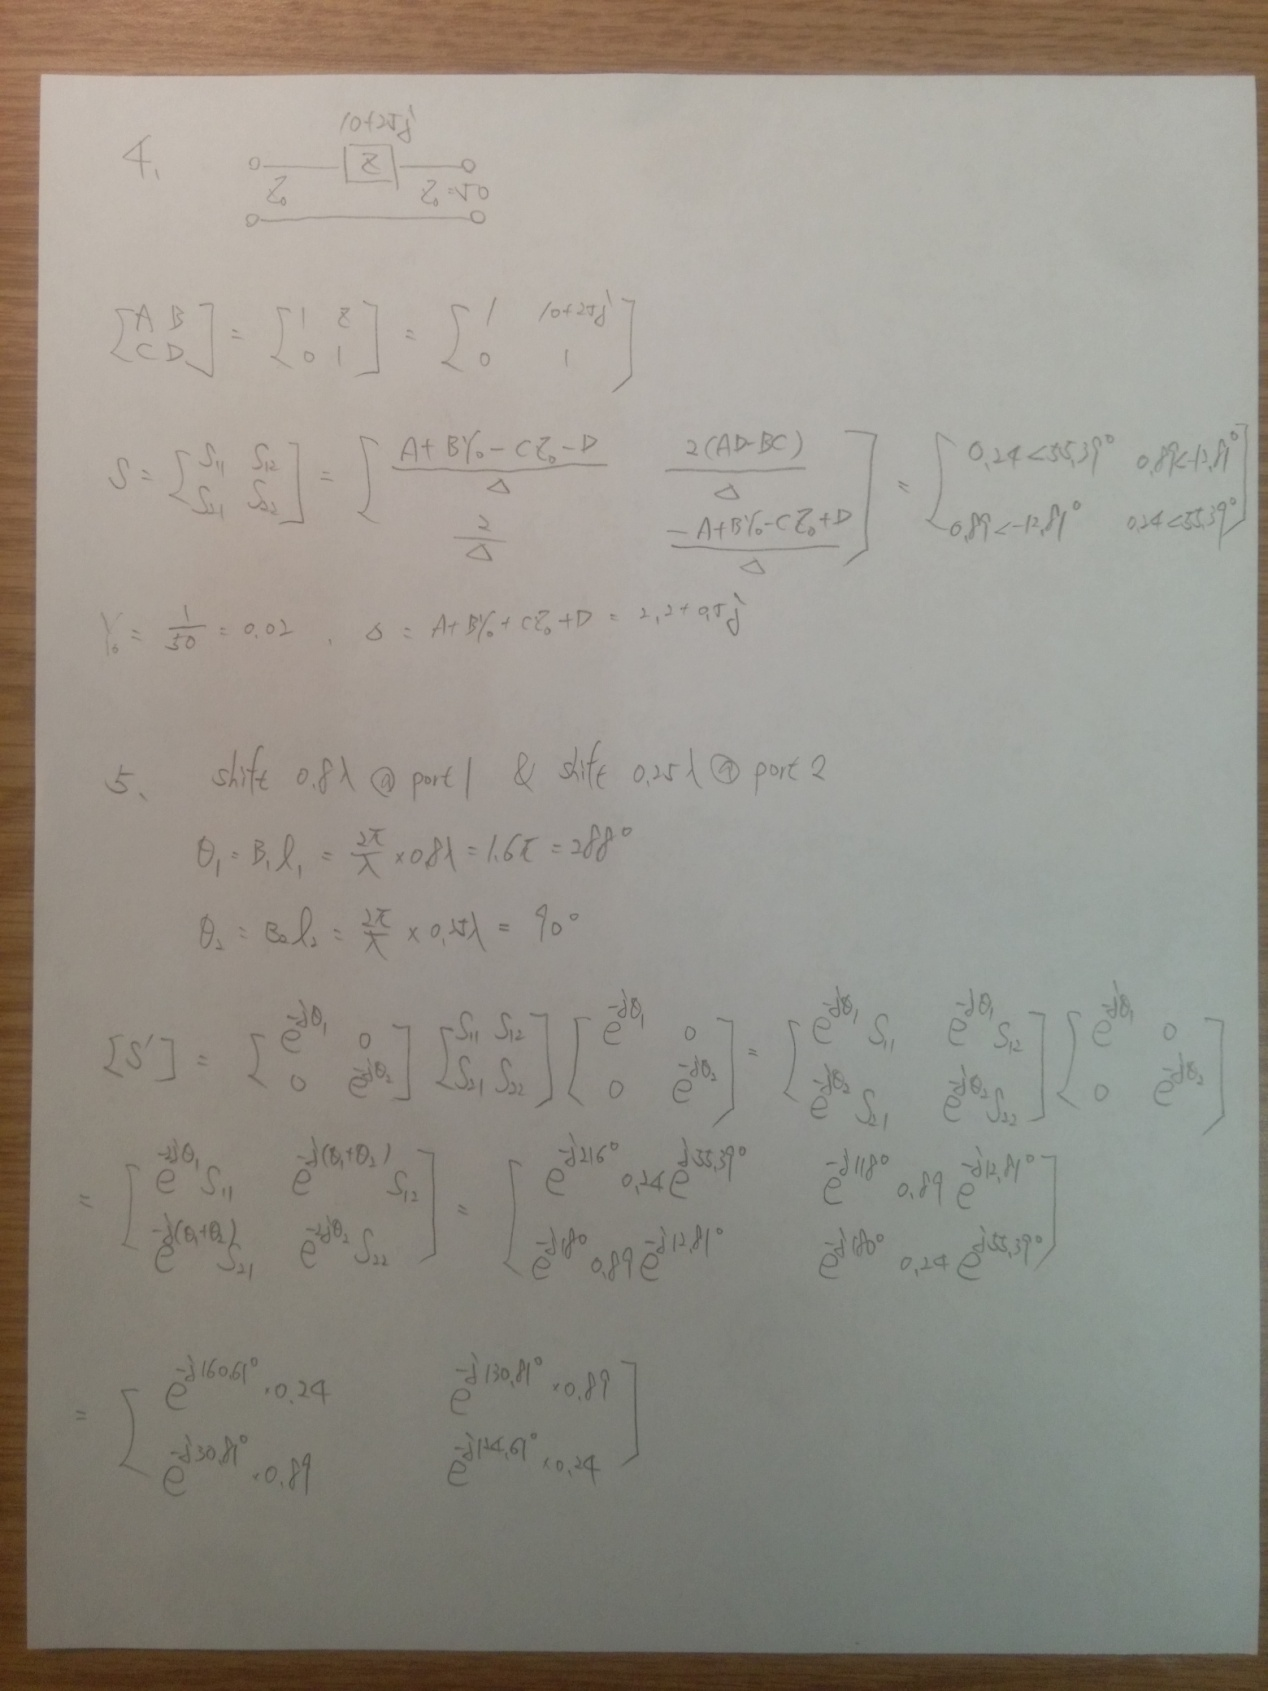 4.
10+25j
Z
Z₀ Z₀=50
[A B C D] = [1 Z 0 1] = [1 10+25j 0 1]
S = [S₁₁ S₁₂ S₂₁ S₂₂] = [(A+BY₀-CZ₀-D)/Δ 2(AD-BC)/Δ 2/Δ (-A+BY₀-CZ₀+D)/Δ] = [0.24<55.39° 0.89<-12.81° 0.89<-12.81° 0.24<55.39°]
Y₀ = 1/50 = 0.02 , Δ = A+BY₀+CZ₀+D = 2.2+0.5j
5. shift 0.8λ @ port 1 & shift 0.25λ @ port 2
θ₁ = B₁l₁ = 2π/λ × 0.8λ = 1.6π = 288°
θ₂ = B₂l₂ = 2π/λ × 0.25λ = 90°
[S'] = [e^-jθ₁ 0 0 e^-jθ₂] [S₁₁ S₁₂ S₂₁ S₂₂] [e^-jθ₁ 0 0 e^-jθ₂] = [e^-jθ₁ S₁₁ e^-jθ₁ S₁₂ e^-jθ₂ S₂₁ e^-jθ₂ S₂₂] [e^-jθ₁ 0 0 e^-jθ₂]
= [e^-2jθ₁ S₁₁ e^-j(θ₁+θ₂) S₁₂ e^-j(θ₁+θ₂) S₂₁ e^-2jθ₂ S₂₂] = [e^-j216° 0.24 e^j55.39° e^-j118° 0.89 e^-j12.81° e^-j18° 0.89 e^-j12.81° e^-j180° 0.24 e^j55.39°]
= [e^-j160.61° · 0.24 e^-j130.81° × 0.89 e^-j30.81° · 0.89 e^-j124.61° × 0.24]